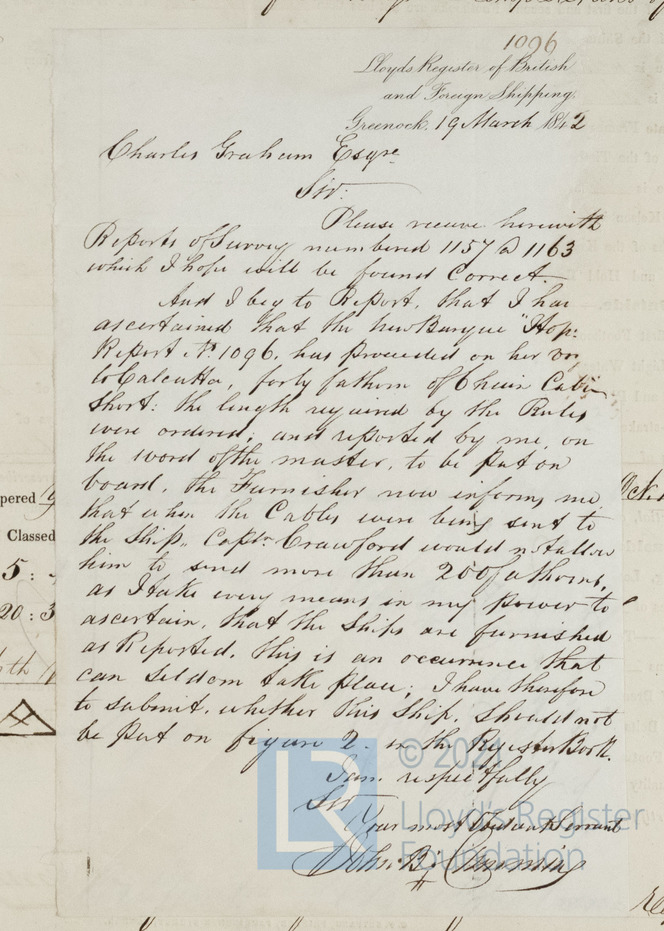 1096
Lloyds Register of British
and Foreign Shipping.
Greenock. 19 March 1842
Charles Graham Esqre
Sir.
Please receive herewith
Reports of Survey numbered 1157 @ 1163
which I hope will be found Correct.
And I beg to Report, that I hav
ascertained that the new Barque "Hop:
Report No. 1096. has proceeded on her vo
to Calcutta, forty fathom of Chain Cab
Short: the length required by the Rules
were ordered; and reported by me, on
the word of the master, to be put on
board, the Furnisher now informs me
that when the Cables were being sent to
the Ship, Captn. Crawford would not allow
him to send more than 200 fathoms,
as I take every means in my power to
ascertain, that the Ships are furnished
as Reported. this is an occurrence that
can seldom take place; I have therefore
to submit, whether this Ship, should not
be put on figure 2. in the Register Book.
I am. respectfully
Sir
Your most Obedient Servant
John. B.
pered
Classed
5:
20: 3
© 2021
LR
Lloyd's Register
Foundation